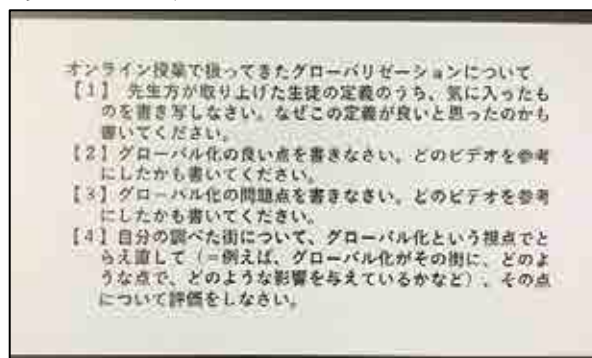 オンライン授業で扱ってきたグローバリゼーションについて
【1】 先生方が取り上げた生徒の定義のうち、気に入ったも
のを書き写しなさい。なぜこの定義が良いと思ったのかも
書いてください。
【2】グローバル化の良い点を書きなさい。どのビデオを参考
にしたかも書いてください。
【3】グローバル化の問題点を書きなさい。どのビデオを参考
にしたかも書いてください。
【4】自分の調べた街について、グローバル化という視点でと
らえ直して（＝例えば、グローバル化がその街に、どのよ
うな点で、どのような影響を与えているかなど）、その点
について評価をしなさい。